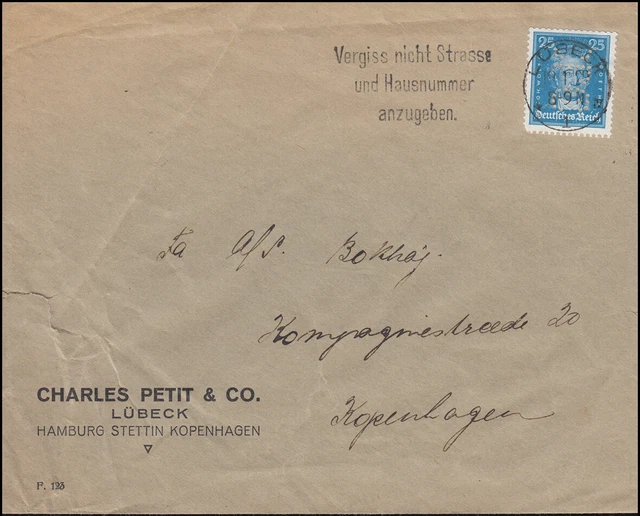 Vergiss nicht Strasse
und Hausnummer
anzugeben.
25 25
LÜBECK
8-9N
1
Deutsches Reich
Fa A/S. Bokhåj.
Kompagniestræde 20
Kopenhagen
CHARLES PETIT & CO.
LÜBECK
HAMBURG STETTIN KOPENHAGEN
F. 123